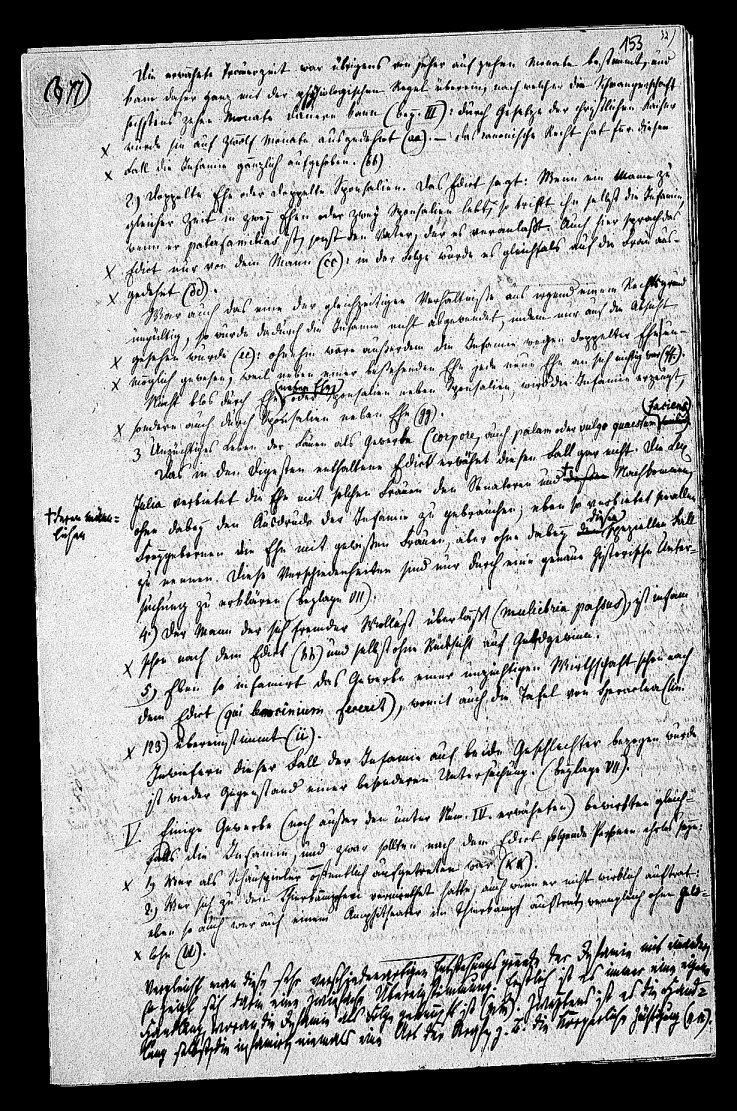 153
(§ 77)
Die erwähnte Trauerzeit war übrigens von jeher auf zehen Monate bestimmt, und
kam daher ganz mit der physiologischen Regel überein, nach welcher die Schwangerschaft
höchstens zehen Monate dauern kann (beyl. III): durch Gesetze der christlichen Kaiser
x wurde sie auf zwölf Monate ausgedehnt (aa). — das canonische Recht hat für diesen
x Fall die Infamie gänzlich aufgehoben. (bb)
2.) Doppelte Ehe oder doppelte Sponsalien. Das Edict sagt: Wenn ein Mann zu
gleicher Zeit in zwey Ehen oder zwey Sponsalien lebt, so trifft ihn selbst die Infamie,
wenn er paterfamilias ist, sonst den Vater, der es veranlaßt. Auch hier sprach das
x Edict nur von dem Mann (cc): in der Folge wurde es gleichfals auf die Frau aus-
x gedehnt (dd).
War auch das eine der gleichzeitigen Verhältnisse aus irgend einem Rechtsgrund
ungültig, so wurde dadurch die Infamie nicht abgewendet, indem nur auf die Absicht
x gesehen wurde (ee): ohnehin wäre außerdem die Infamie wegen doppelter Ehe un-
x möglich gewesen, weil neben einer bestehenden Ehe jede neue Ehe an sich nichtig war (ff).
Nicht blos durch Ehe neben Ehe, oder Sponsalien neben Sponsalien, wird die Infamie erzeugt,
x sondern auch durch Sponsalien neben Ehe (gg).
3 Unzüchtiges Leben der Frauen als Gewerbe (corpore, auch palam oder vulgo quaestum faciens)
Das in den Digesten enthaltene Edict erwähnt diesen Fall gar nicht. Die Lex
Julia verbietet die Ehe mit solchen Frauen den Senatoren und † Nachkommen,
† deren männ=
lichen
ohne dabey den Ausdruck der Infamie zu gebrauchen; eben so verbietet sie allen
Freygebornen die Ehe mit gewissen Frauen, aber ohne dabey diesen speziellen Fall
zu nennen. Diese Verschiedenheiten sind nur durch eine genaue historische Unter-
suchung zu erklären (beylage VII).
4.) Der Mann der sich fremder Wollust überläßt (muliebria passus), ist infam
x schon nach dem Edict (hh) und selbst ohne Rücksicht auf Geldgewinn.
5) Eben so infamirt das Gewerbe einer unzüchtigen Wirthschaft schon nach
dem Edict (qui lenocinium fecerit), womit auch die Tafel von Heraclea (lin.
x 123) übereinstimmt (ii).
Inwiefern dieser Fall der Infamie auf beide Geschlechter bezogen wurde
ist wieder Gegenstand einer besonderen Untersuchung. (beylage VII).
V Einige Gewerbe (noch außer den unter Num. IV. erwähnten) bewirkten gleich-
falls die Infamie, und zwar sollten nach dem Edict folgende Personen ehrlos seyn:
x 1) Wer als Schauspieler öffentlich aufgetreten war (kk)
2.) Wer sich zu den Thierkämpfen vermiethet hatte, auch wenn er nicht wirklich auftrat:
eben so auch wer auf einem Amphitheater im Thierkampf auftrat, wenngleich ohne Geld-
x lohn (ll).
Vergleicht man diese sehr verschiedenartigen Entstehungsgründe der Infamie mit einander,
so zeigt sich darin eine zwiefache Übereinstimmung. Erstlich ist es immer eine eigene
Handlung, woran die Infamie als Folge geknüpft ist (mm). Zweytens ist es die Hand=
lung selbst, die infamirt, niemals eine Art der Strafe, z. B. die körperliche Züchtigung (nn).